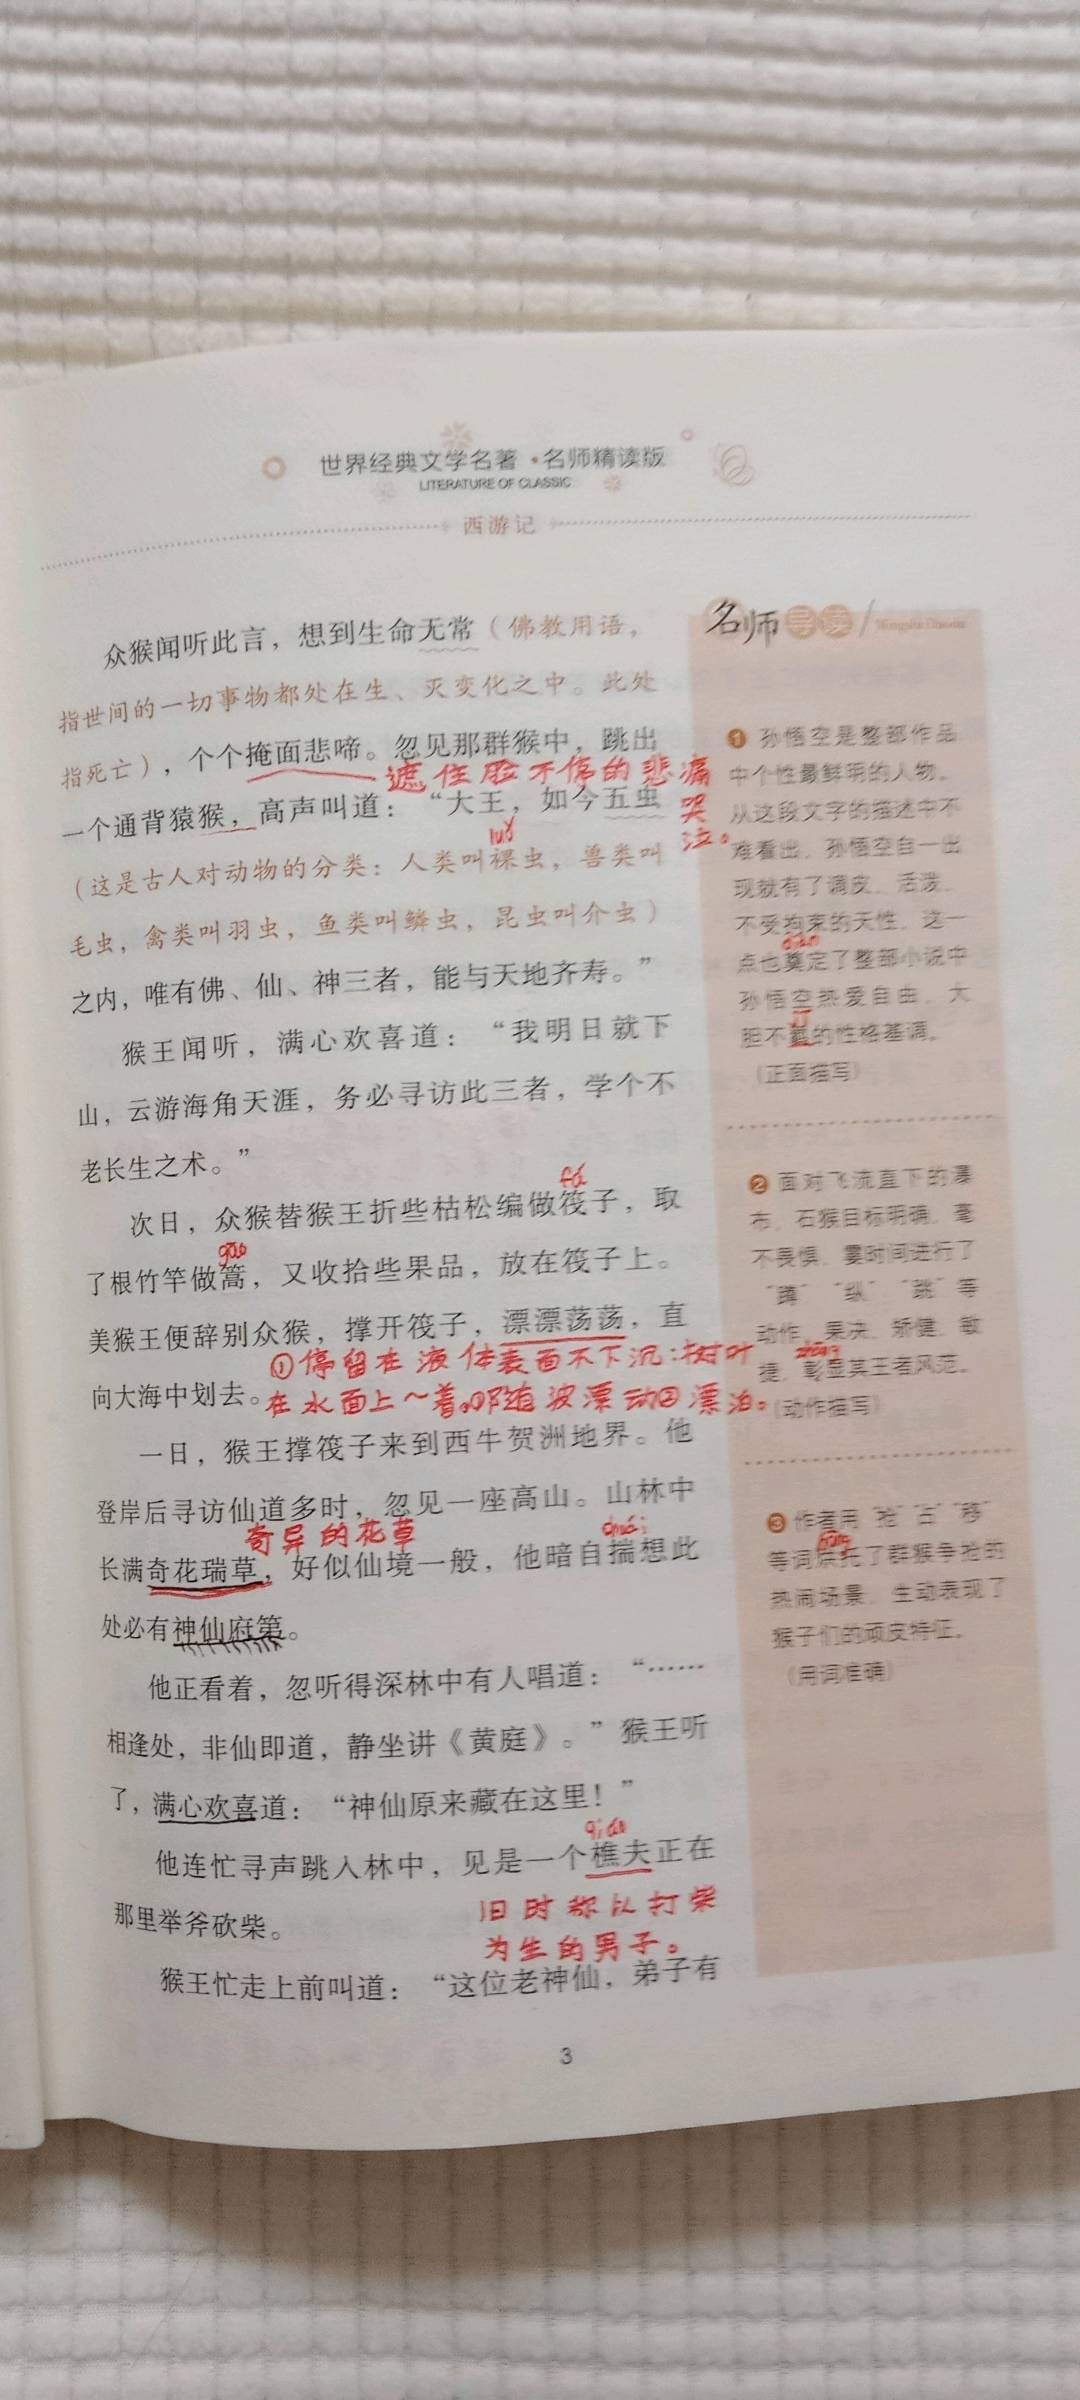 世界经典文学名著·名师精读版
LITERATURE OF CLASSIC
西游记
众猴闻听此言，想到生命无常（佛教用语，
指世间的一切事物都处在生、灭变化之中。此处
指死亡），个个掩面悲啼。忽见那群猴中，跳出
遮住脸不停的悲痛
哭
泣。
一个通背猿猴，高声叫道：“大王，如今五虫
luǒ
（这是古人对动物的分类：人类叫裸虫，兽类叫
毛虫，禽类叫羽虫，鱼类叫鳞虫，昆虫叫介虫）
之内，唯有佛、仙、神三者，能与天地齐寿。”
猴王闻听，满心欢喜道：“我明日就下
山，云游海角天涯，务必寻访此三者，学个不
老长生之术。”
fá
次日，众猴替猴王折些枯松编做筏子，取
gāo
了根竹竿做篙，又收拾些果品，放在筏子上。
美猴王便辞别众猴，撑开筏子，漂漂荡荡，直
①停留在液体表面不下沉：树叶
向大海中划去。
在水面上～着。随波漂动②漂泊。
一日，猴王撑筏子来到西牛贺洲地界。他
登岸后寻访仙道多时，忽见一座高山。山林中
奇异的花草
chuǎi
长满奇花瑞草，好似仙境一般，他暗自揣想此
处必有神仙府第。
他正看着，忽听得深林中有人唱道：“……
相逢处，非仙即道，静坐讲《黄庭》。”猴王听
了，满心欢喜道：“神仙原来藏在这里！”
qiáo
他连忙寻声跳入林中，见是一个樵夫正在
那里举斧砍柴。
旧时称以打柴
为生的男子。
猴王忙走上前叫道：“这位老神仙，弟子有
3
名师导读
Mingshi Daodu
❶孙悟空是整部作品
中个性最鲜明的人物。
从这段文字的描述中不
难看出，孙悟空自一出
现就有了调皮、活泼、
不受拘束的天性，这一
diàn
点也奠定了整部小说中
孙悟空热爱自由、大
jī
胆不羁的性格基调。
（正面描写）
❷面对飞流直下的瀑
布，石猴目标明确，毫
不畏惧，霎时间进行了
“蹲”“纵”“跳”等
动作，果决、矫健、敏
zhāng
捷，彰显其王者风范。
（动作描写）
❸作者用“抢”“占”“移”
hōng
等词烘托了群猴争抢的
热闹场景，生动表现了
猴子们的顽皮特征。
（用词准确）